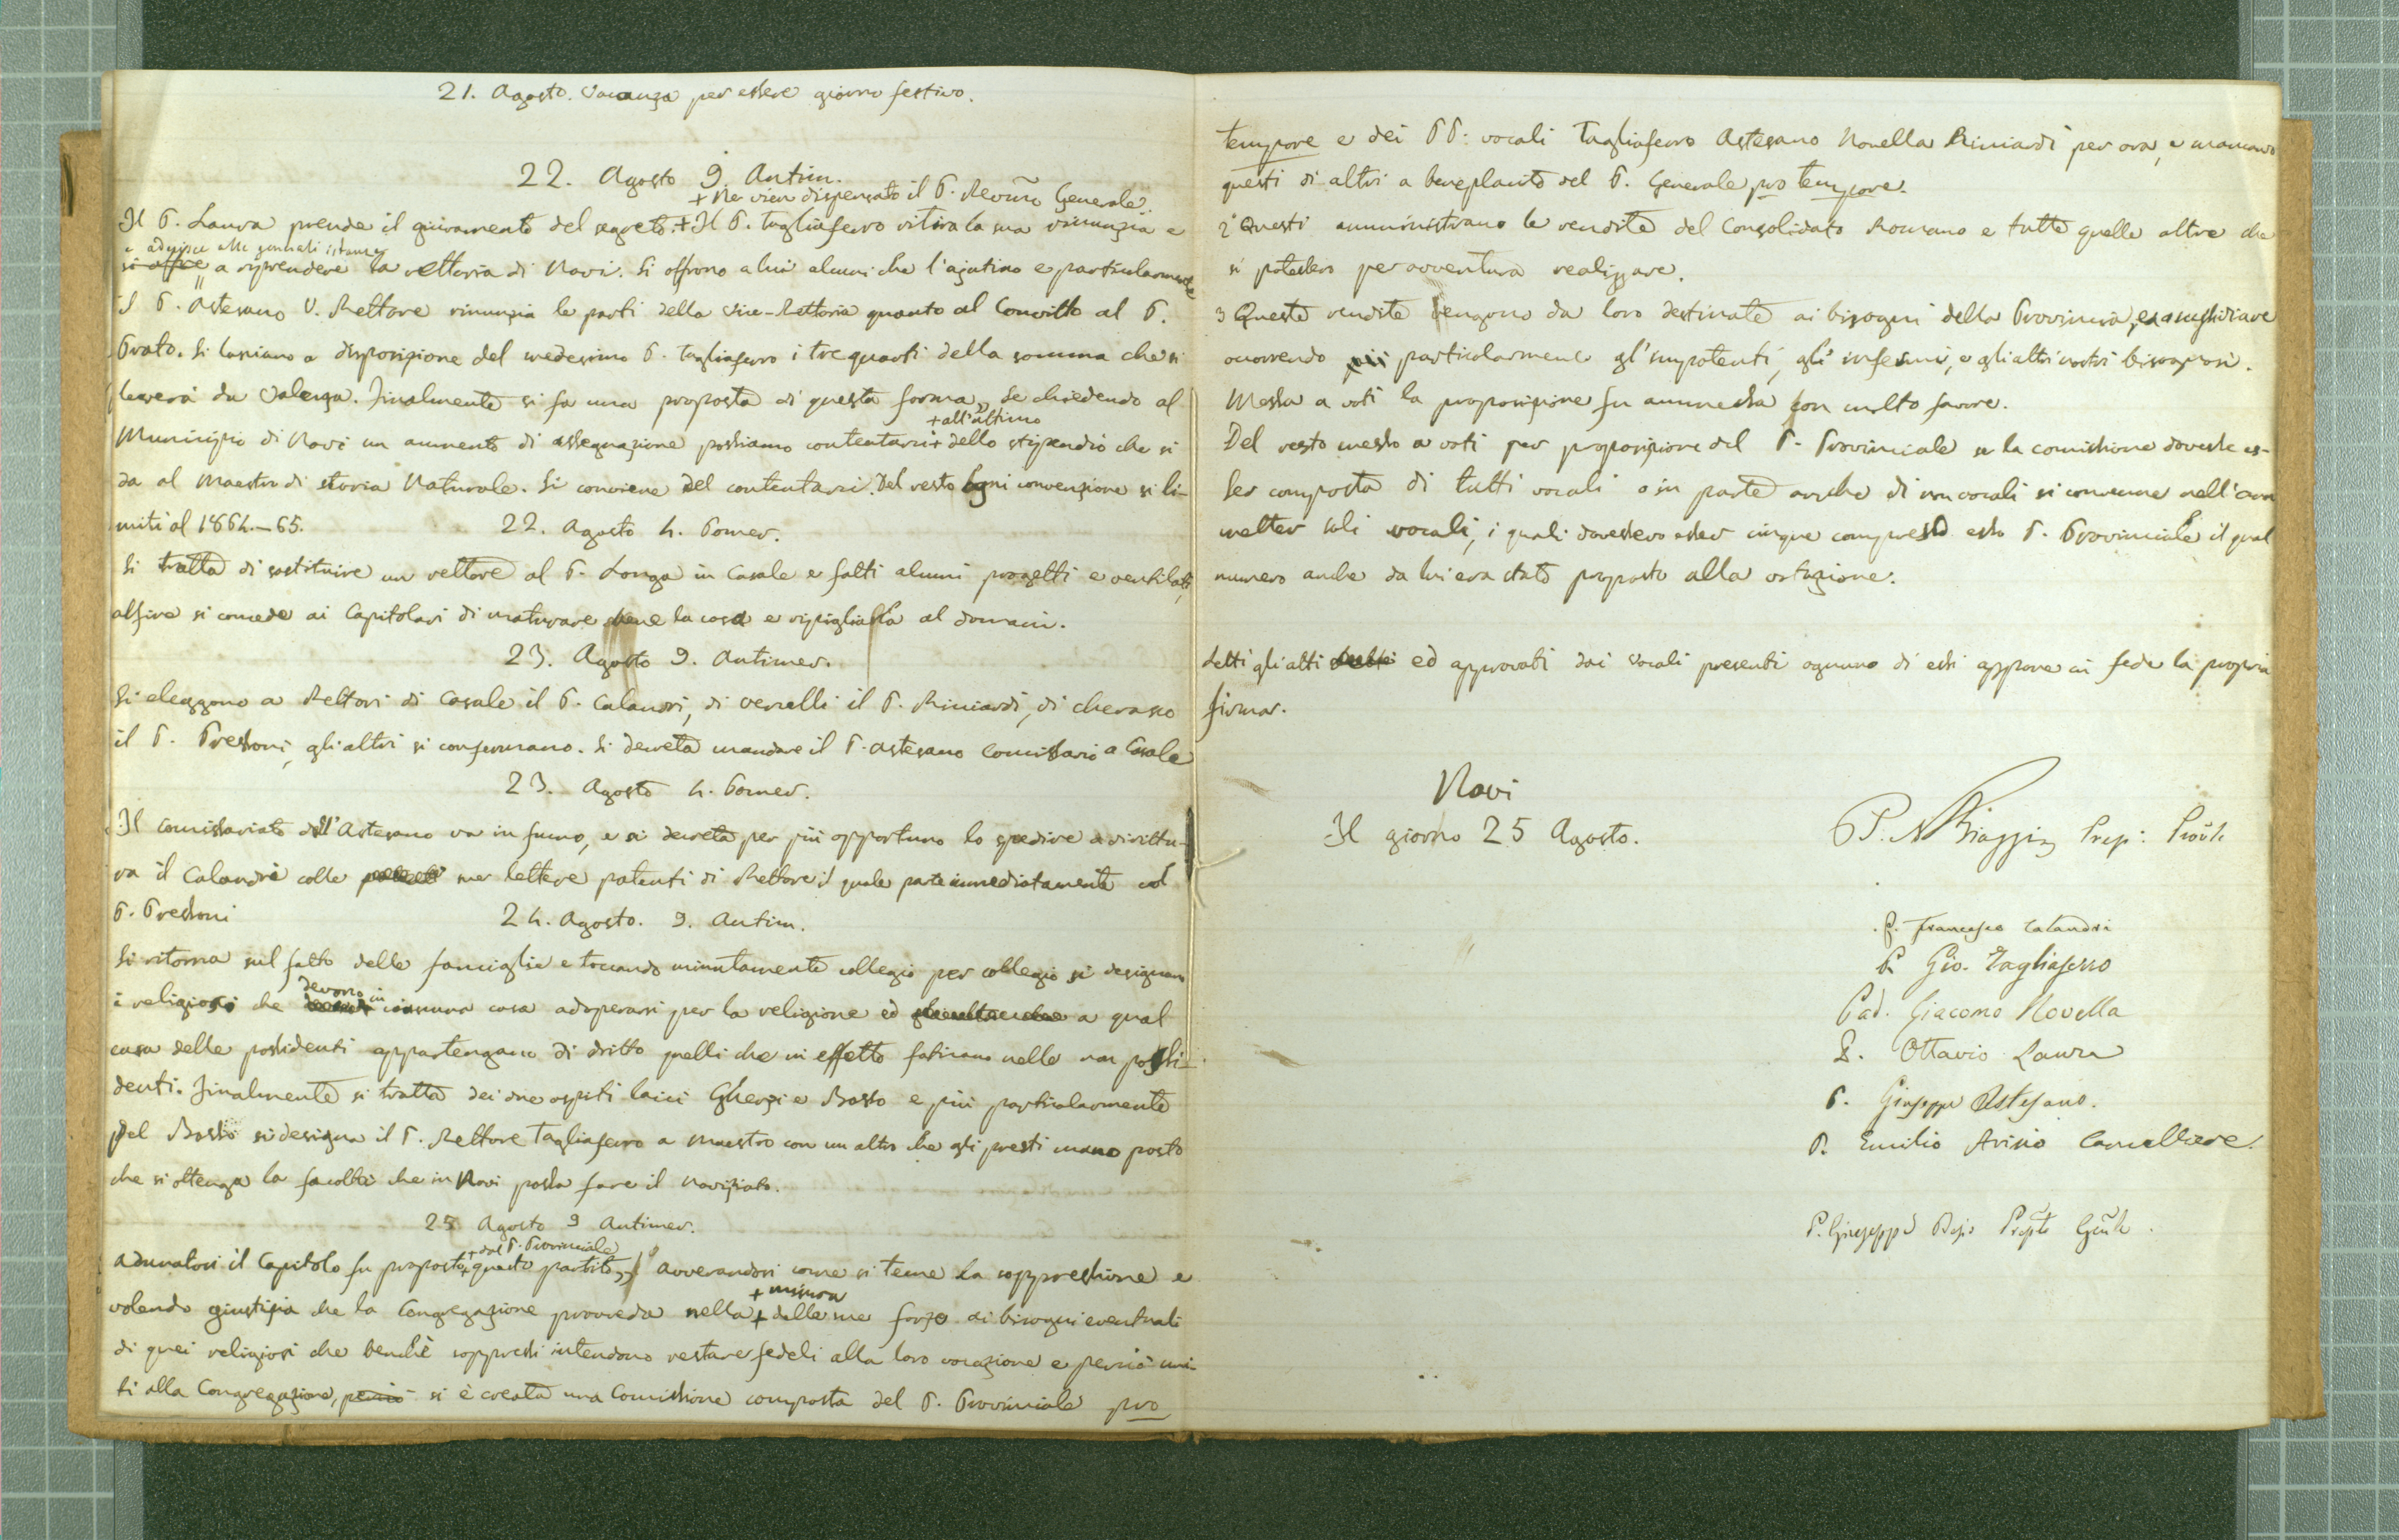 21. Agosto. Vacanza per essere giorno festivo.
22. Agosto 9. Antim.
+ Ne vien dispensato il P. Revmo Generale.
Il P. Laura prende il giuramento del segreto. + Il P. Tagliaferro ritira la sua rinunzia e
e aderisce alle generali istanze
si offre a riprendere la rettoria di Novi. Si offrono a lui alcuni che l'ajutino e particolarmente
Il P. Astesano V. Rettore rinunzia le parti della Vice-Rettoria quanto al Convitto al P.
Prato. Si lasciano a disposizione del medesimo P. Tagliaferro i tre quarti della somma che si
leverà da Valenza. Finalmente si fa una proposta di questa forma „ Se chiedendo al
+ all'ultimo
Municipio di Novi un aumento di assegnazione possiamo contentarci + dello stipendio che si
da al Maestro di storia Naturale. Si conviene del contentarsi. Del resto ogni convenzione si li-
miti al 1864.-65.
22. Agosto 4. Pomer.
Si tratta di sostituire un rettore al P. Longa in Casale e fatti alcuni progetti e ventilati,
alfine si concede ai Capitolari di maturare bene la cosa e ripigliarla al domani.
23. Agosto 9. Antimer.
Si eleggono a Rettori di Casale il P. Calandri, di Vercelli il P. Riciardi, di Cherasco
il P. Pressoni, gli altri si confermano. Si decreta mandare il P. Astesano Comissario a Casale
23. Agosto 4. Pomer.
Il comissariato dell'Astesano va in fumo, e si decreta per più opportuno lo spedire adirittu-
ra il Calandri colle sue lettere patenti di Rettore il quale parte immediatamente col
P. Pressoni
24. Agosto. 9. Antim.
Si ritorna sul fatto delle famiglie e toccando minutamente collegio per collegio si designano
devono in
i religiosi che ciascuna casa adoperarsi per la religione ed a qual
casa delle possidenti appartengano di dritto quelli che in effetto faticano nelle non possi-
denti. Finalmente si tratta dei due ospiti laici Ghersi e Bosso e più particolarmente
Pel Bosso si designa il P. Rettore Tagliaferro a Maestro con un altro che gli presti mano posto
che si ottenga la facoltà che in Novi possa fare il Noviziato.
25 Agosto 9 Antimer.
+ dal P. Provinciale
Adunatosi il Capitolo fu proposto + questo partito „ Avverandosi come si teme la soppressione e
+ misura
volendo giustizia che la Congregazione provveda nella + delle sue forze ai bisogni eventuali
di quei religiosi che benchè soppressi intendono restare fedeli alla loro vocazione e perciò uni-
ti alla Congregazione, perciò si è creata una Comissione composta del P. Provinciale pro
tempore e dei PP. vocali Tagliaferro Astesano Novella Riciardi per ora, e mancando
questi di altri a beneplacito del P. Generale pro tempore.
2° Questi amministrano le rendite del Consolidato Romano e tutte quelle altre che
si potessero per avventura realizzare.
3 Queste rendite vengono da loro destinate ai bisogni della Provincia, ed a sussidiare
occorrendo più particolarmente gl'impotenti, gli infermi, e gli altri nostri bisognosi.
Messa a voti la proposizione fu ammessa con molto favore.
Del resto messo a voti per proposizione del P. Provinciale se la comissione dovesse es-
ser composta di tutti vocali o in parte anche di non vocali si convenne nell'am
metter soli vocali, i quali dovessero esser cinque compreso esso P. Provinciale il qual
numero anche da lui era stato proposto alla votazione.
Letti gli atti ed approvati dai Vocali presenti ognuno di essi appone in fede la propria
firma.
Novi
Il giorno 25 Agosto.
P. N Biaggi Prep: Prov̄le
P. Francesco Calandri
P. Gio. Tagliaferro
Pad. Giacomo Novella
P. Ottavio Laura
P. Giuseppe Astesano.
P. Emilio Arisio Cancelliere.
P. Giuseppe Besio Prep̄to Gen̄le.